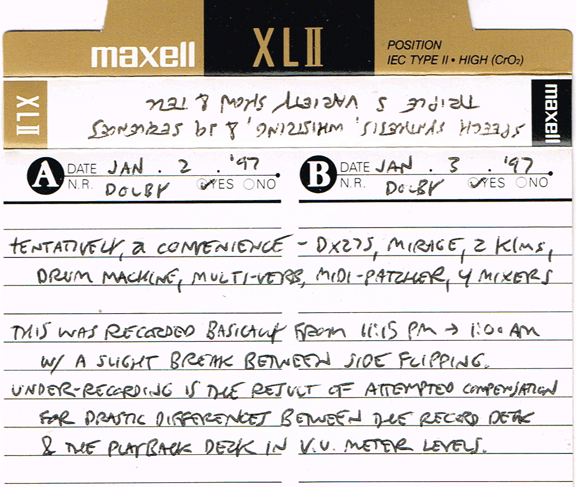 maxell XLII POSITION
IEC TYPE II • HIGH (CrO₂)
XLII
maxell
SPEECH SYNTHESIS, WHISTLING, & SEQUENCES
TRIPLE S VARIETY SHOW & TELL
A DATE JAN. 2. '97
N.R. DOLBY YES NO
B DATE JAN. 3. '97
N.R. DOLBY YES NO
tENTATIVELY, a CONVENIENCE - DX27S, MIRAGE, 2 K1ms,
DRUM MACHINE, MULTI-VERB, MIDI-PATCHER, 4 MIXERS
THIS WAS RECORDED BASICALLY FROM 11:15 PM → 1:00 AM
W/ A SLIGHT BREAK BETWEEN SIDE FLIPPING.
UNDER-RECORDING IS THE RESULT OF ATTEMPTED COMPENSATION
FOR DRASTIC DIFFERENCES BETWEEN THE RECORD DECK
& THE PLAYBACK DECK IN V.U. METER LEVELS.